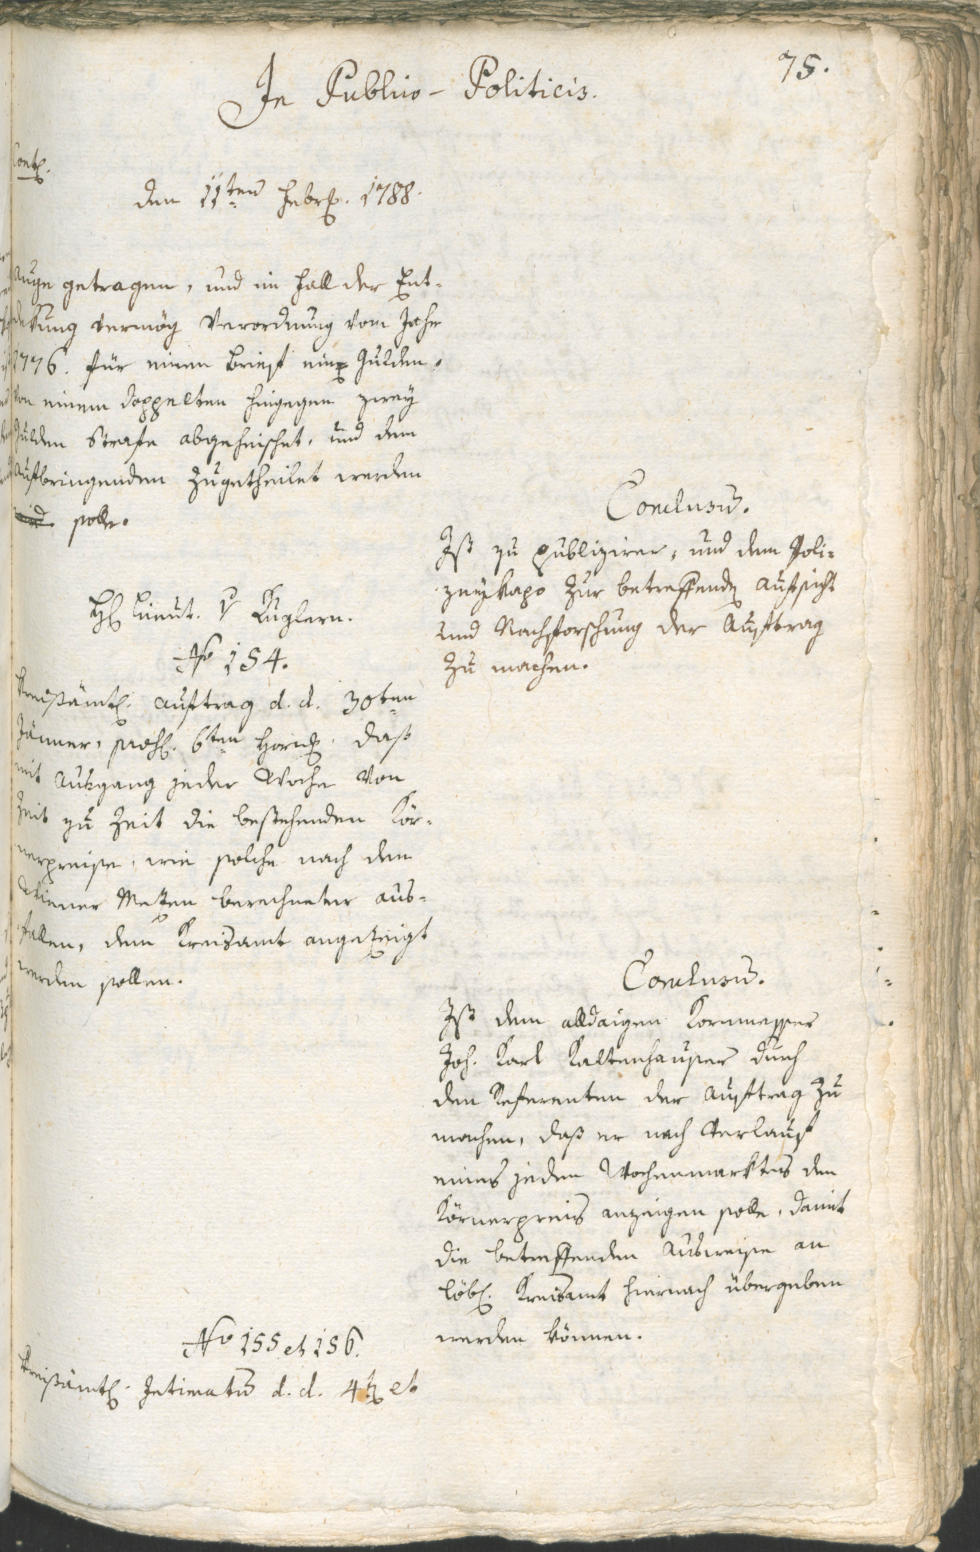 75.
In Publico-Politicis.
Cont.
den 11ten Febr. 1788.
Auge getragen, und im Fall der Ent-
dekung vermög Verordnung vom Jahr
1776. für einen Brief ein Gulden,
von einem doppelten hingegen zwey
Gulden Strafe abgeheischet, und dem
Aufbringenden zugetheilet werden
solle.
Conclusum.
Ist zu publiziren, und dem Poli-
zeykapo zur betreffenden Aufsicht
und Nachforschung der Auftrag
zu machen.
H. Lieut. v Kuglern.
No 154.
Kreisämtl. Auftrag d. d. 30ten
Jänner, 6ten Hornung. daß
mit Ausgang jeder Woche von
Zeit zu Zeit die bestehenden Kör-
nerpreise, wie solche nach dem
Wiener Metzen berechneter aus-
fallen, dem Kreisamt angezeigt
werden sollen.
Conclusum.
Ist dem alldaigen Kornmesser
Joh. Karl Kaltenhauser durch
den Referenten der Auftrag zu
machen, daß er nach Verlauf
eines jeden Wochenmarktes den
Körnerpreis anzeigen solle, damit
die betreffenden Ausweise an
löbl. Kreisamt hiernach übergeben
werden können.
No 155 et 156.
Kreisämtl. Intimatum d. d. 4ten et